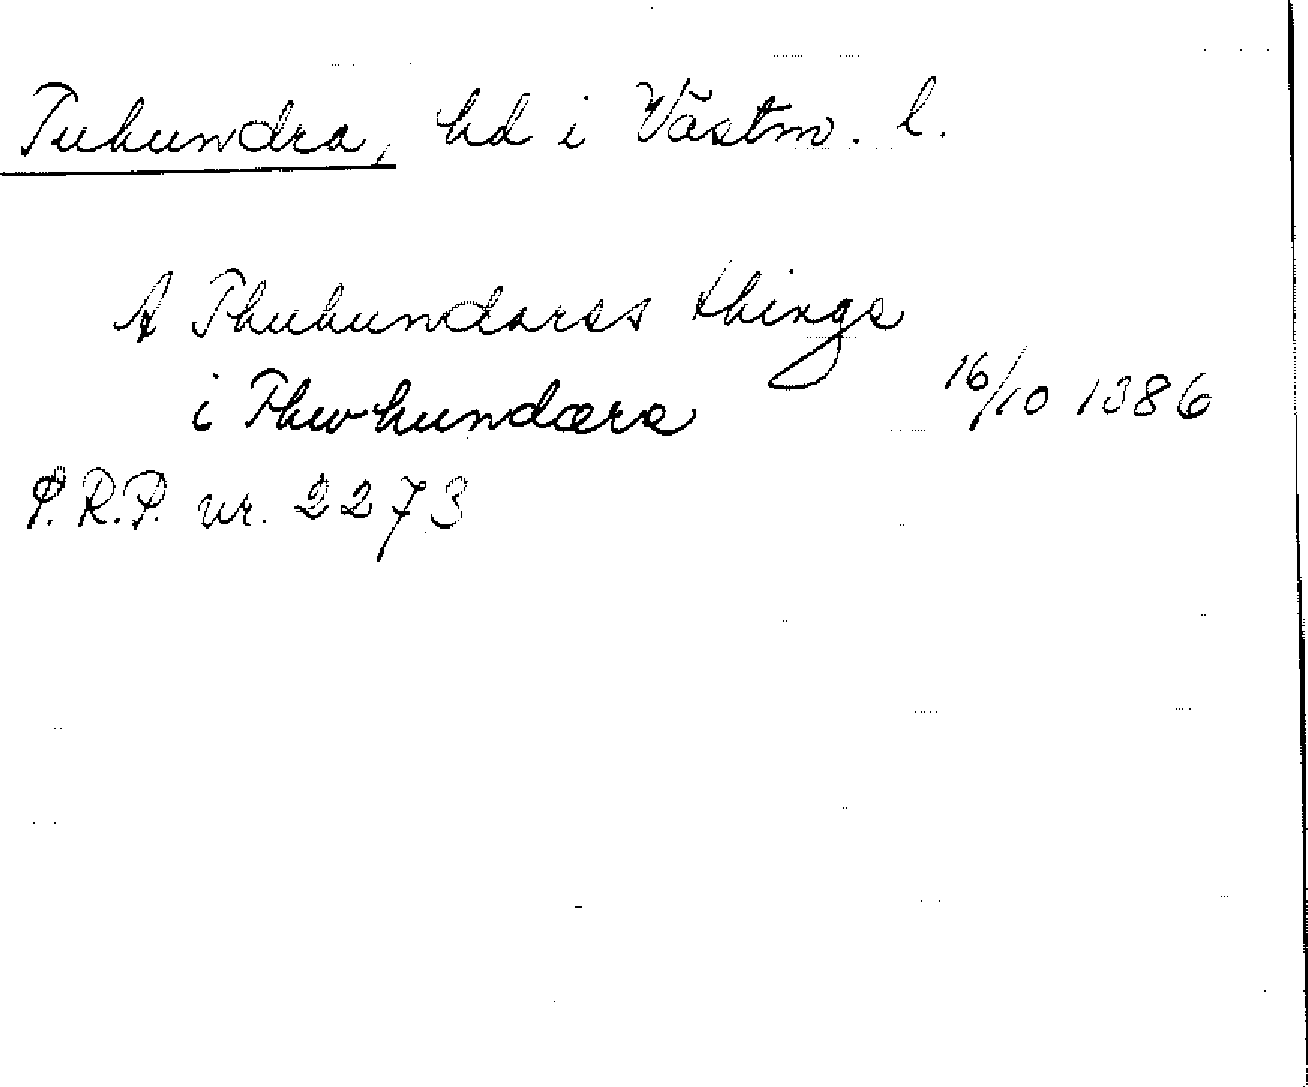 Tuhundra, hd i Västm. l.
A Thuhundarss thinge
i Thwhundæra 16/10 1386
P.R.P. nr. 2273